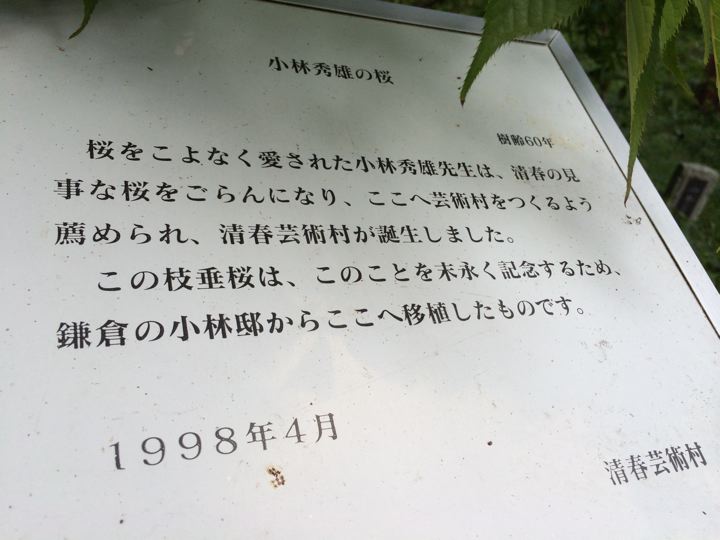 小林秀雄の桜
樹齢60年
桜をこよなく愛された小林秀雄先生は、清春の見
事な桜をごらんになり、ここへ芸術村をつくるよう
薦められ、清春芸術村が誕生しました。
この枝垂桜は、このことを末永く記念するため、
鎌倉の小林邸からここへ移植したものです。
1998年4月
清春芸術村